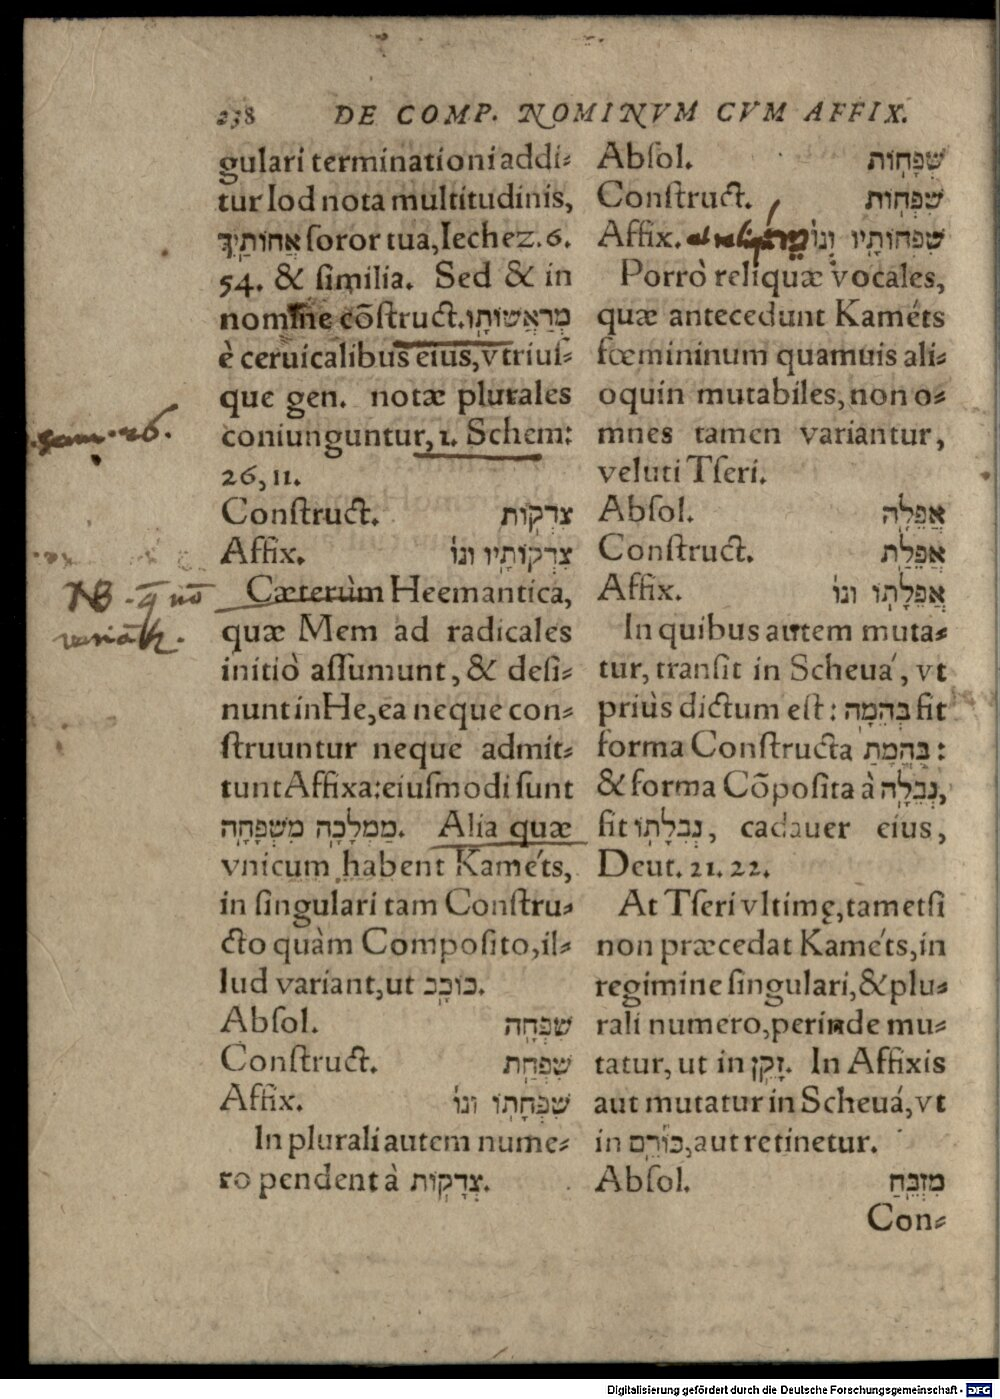 238 DE COMP. NOMINVM CVM AFFIX.
gulari terminationi addi⸗
tur Iod nota multitudinis,
אֲחוֹתַיִךְ soror tua, Iechez. 6.
54. & similia. Sed & in
nomine cõstruct. מְרַאֲשׁוֹתָו
è ceruicalibus eius, vtrius⸗
que gen. notæ plurales
coniunguntur, 1. Schem:
26, 11.
Construct. צִדְקוֹת
Affix. צִדְקוֹתָיו וגו
Cæterùm Heemantica,
quæ Mem ad radicales
initiò assumunt, & desi⸗
nunt in He, ea neque con⸗
struuntur neque admit⸗
tunt Affixa: eiusmodi sunt
מַמְלָכָה מִשְׁפָּחָה. Alia quæ
vnicum habent Kaméts,
in singulari tam Constru⸗
cto quàm Composito, il⸗
lud variant, ut כּוֹכָב.
Absol. שִׁפְחָה
Construct. שִׁפְחַת
Affix. שִׁפְחָתוֹ וגו
In plurali autem nume⸗
ro pendent à צְדָקוֹת.
sam. 26.
NB
Absol. שְׁפָחוֹת
Construct. שִׁפְחוֹת
Affix. שִׁפְחוֹתָיו וגו
Porrò reliquæ vocales,
quæ antecedunt Kaméts
fœmininum quamuis ali⸗
oquin mutabiles, non o⸗
mnes tamen variantur,
veluti Tseri.
Absol. אֲפֵלָה
Construct. אֲפֵלַת
Affix. אֲפֵלָתוֹ וגו
In quibus autem muta⸗
tur, transit in Scheuá, vt
priùs dictum est: בְּהֵמָה fit
forma Constructa בֶּהֱמַת:
& forma Cõposita à נְבֵלָה,
fit נִבְלָתוֹ, cadauer eius,
Deut. 21. 22.
At Tseri vltimę, tametsi
non præcedat Kaméts, in
regimine singulari, & plu⸗
rali numero, perinde mu⸗
tatur, ut in זָקֵן. In Affixis
aut mutatur in Scheuá, vt
in כּוֹרֵם, aut retinetur.
Absol. מִזְבֵּחַ
Con⸗
Digitalisierung gefördert durch die Deutsche Forschungsgemeinschaft - DFG